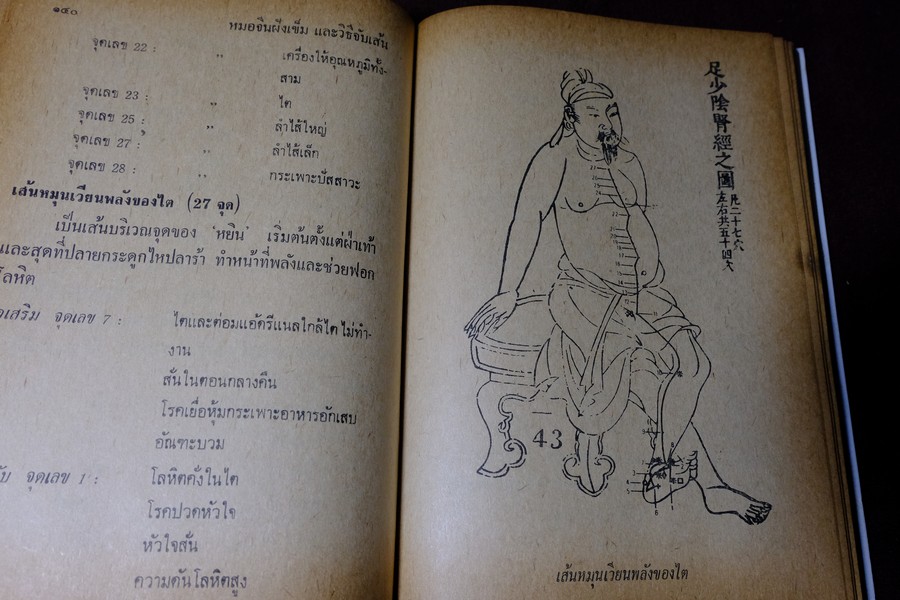 ๑๔๐
หมอจีนฝังเข็ม และวิธีจับเส้น
จุดเลข 22 : ” เครื่องให้อุณหภูมิทั้ง-
สาม
จุดเลข 23 : ” ไต
จุดเลข 25 : ” ลำไส้ใหญ่
จุดเลข 27 : ” ลำไส้เล็ก
จุดเลข 28 : ” กระเพาะปัสสาวะ
เส้นหมุนเวียนพลังของไต (27 จุด)
เป็นเส้นบริเวณจุดของ 'หยิน' เริ่มต้นตั้งแต่ฝ่าเท้า
และสุดที่ปลายกระดูกไหปลาร้า ทำหน้าที่พลังและช่วยฟอก
โลหิต
จุดเลข 7 : ไตและต่อมแอ๊ดรีแนลใกล้ไตไม่ทำ-
งาน
สั่นในตอนกลางคืน
โรคเยื่อหุ้มกระเพาะอาหารอักเสบ
อัณฑะบวม
จุดเลข 1 : โลหิตคั่งในไต
โรคปวดหัวใจ
หัวใจสั่น
ความดันโลหิตสูง
足少陰腎經之圖
凡二十七穴
左右共五十四穴
43
เส้นหมุนเวียนพลังของไต